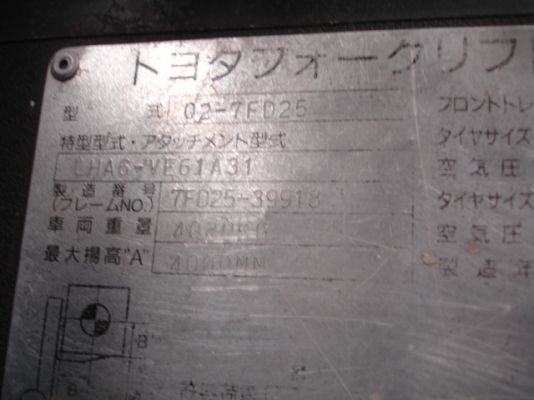 トヨタフォークリフト
型式 02-7FD25
フロントトレ
特型型式・アタッチメント型式
タイヤサイズ
LHA6-VE61A31
空気圧
製造番号
(フレームNO.) 7FD25-39918
タイヤサイズ
車両重量
空気圧
最大揚高"A" 4000MM
製造年
B
B